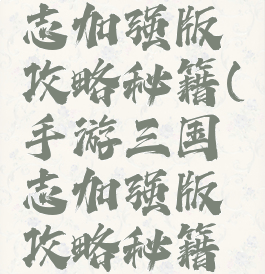 志加强版
攻略秘籍(
手游三国
志加强版
攻略秘籍